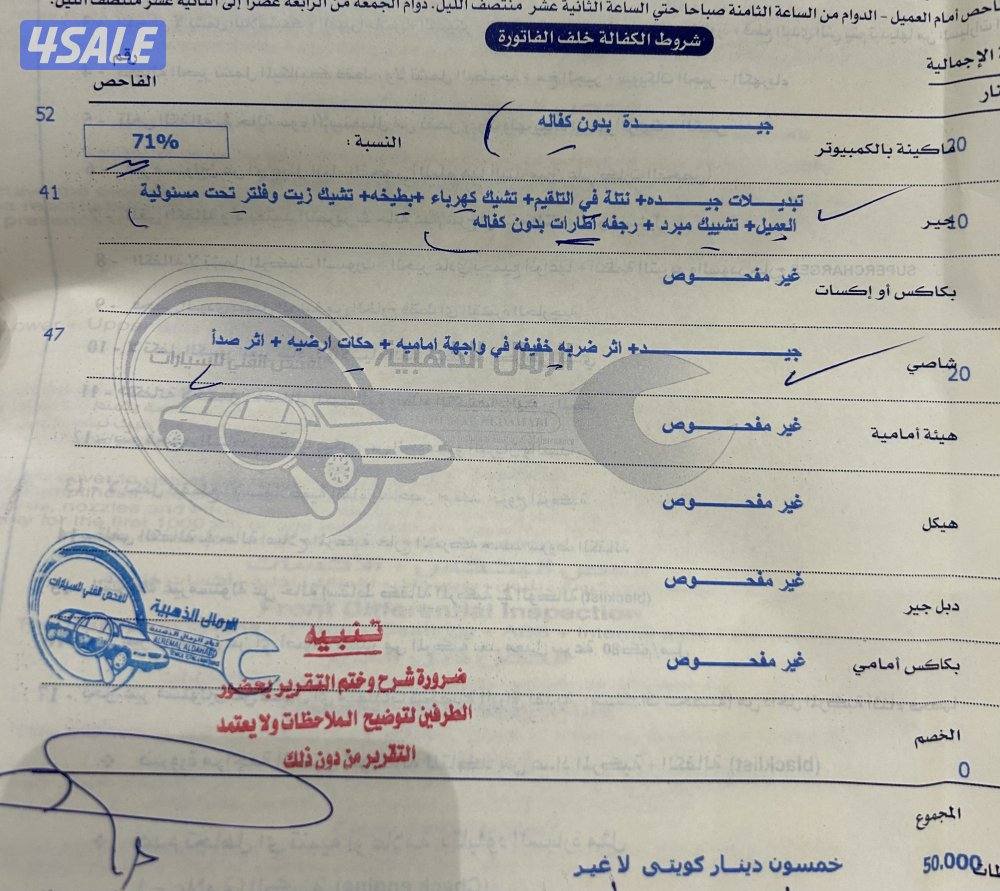 فاحص أمام العميل - الدوام من الساعة الثامنة صباحا حتي الساعة الثانية عشر منتصف الليل. دوام الجمعة من الرابعة عصرا إلى الثانية عشر منتصف الليل.
4SALE
شروط الكفالة خلف الفاتورة
الإجمالية
رقم
الفاحص
52
جيـــدة بدون كفاله
20
ماكينة بالكمبيوتر
النسبة :
71%
41
تبديـلات جيـــده+ نتلة في التلقيم+ تشيك كهرباء +بطيخه+ تشيك زيت وفلتر تحت مسئولية
العميل+ تشييك مبرد + رجفه اطارات بدون كفاله
10
جير
غير مفحـــوص
بكاكس أو إكسات
47
جيـــد+ اثر ضربه خفيفه في واجهة اماميه + حكات ارضيه + اثر صدأ
شاصي
20
غير مفحـــوص
هيئة أمامية
غير مفحـــوص
هيكل
غير مفحـــوص
دبل جير
غير مفحـــوص
بكاكس أمامي
الفحص الفني للسيارات
الرمال الذهبية
تنبيه
ضرورة شرح وختم التقرير بحضور
الطرفين لتوضيح الملاحظات ولا يعتمد
التقرير من دون ذلك
الخصم
0
المجموع
50.000
خمسون دينار كويتى لا غير